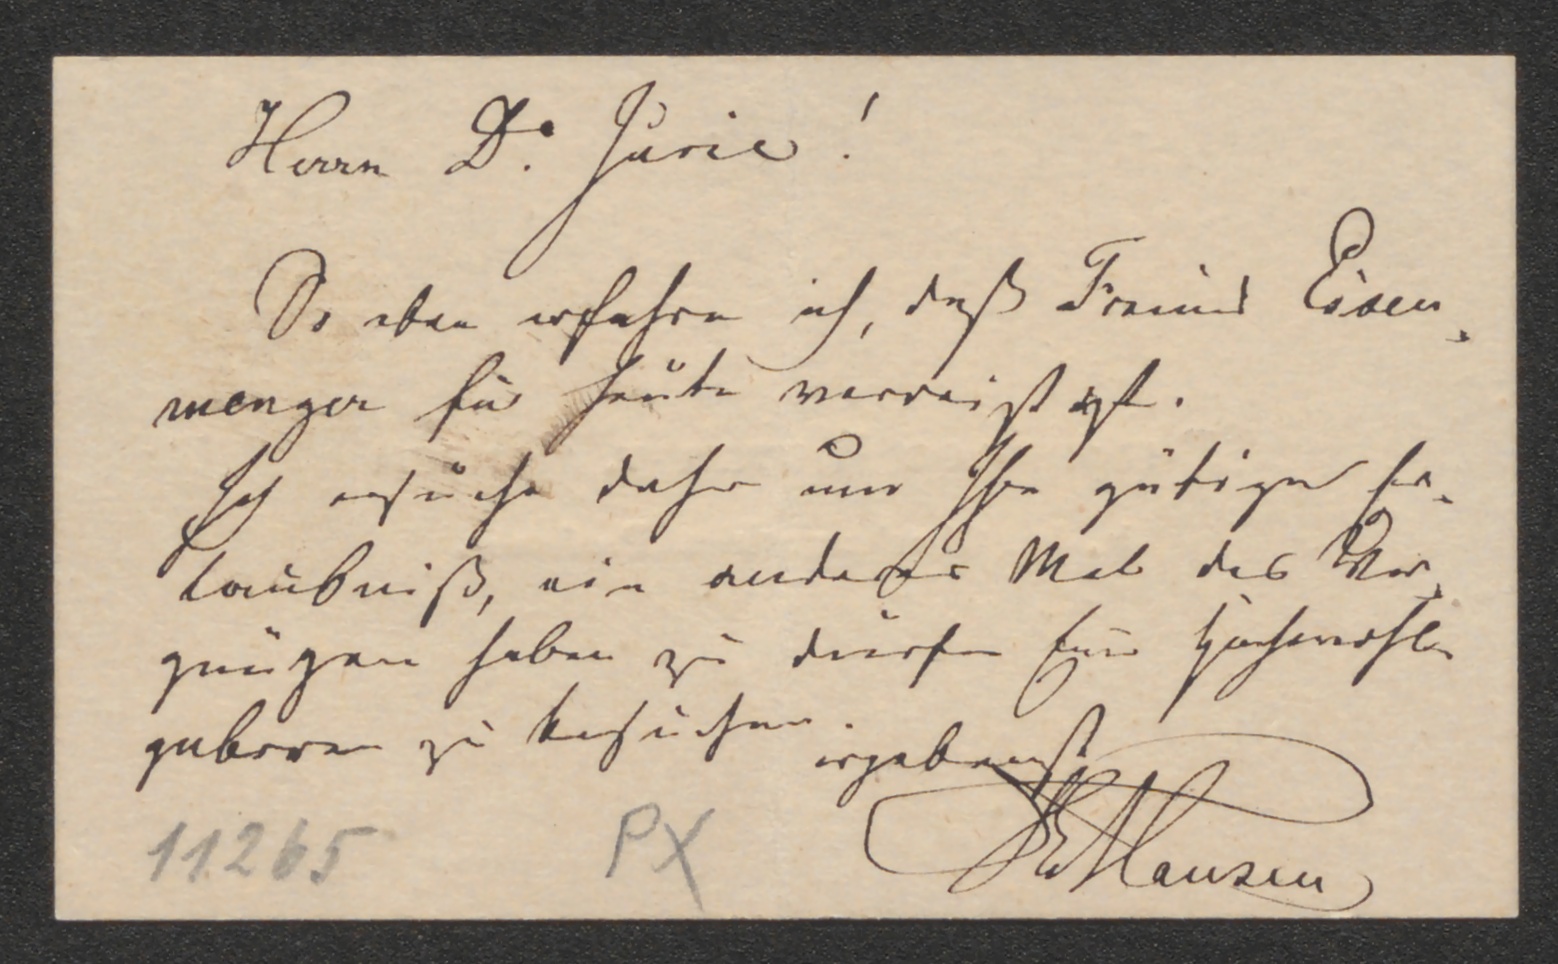 Herrn Dr. Jurie!
So eben erfahre ich, daß Freund Eisen-
menger für heute verreist ist.
Ich ersuche daher um Ihre gütige Er-
laubniß, ein anderes Mal das Ver-
gnügen haben zu dürfen Euer Hochwohl-
geboren zu besuchen.
ergebenst
Th Hansen
11265 PX